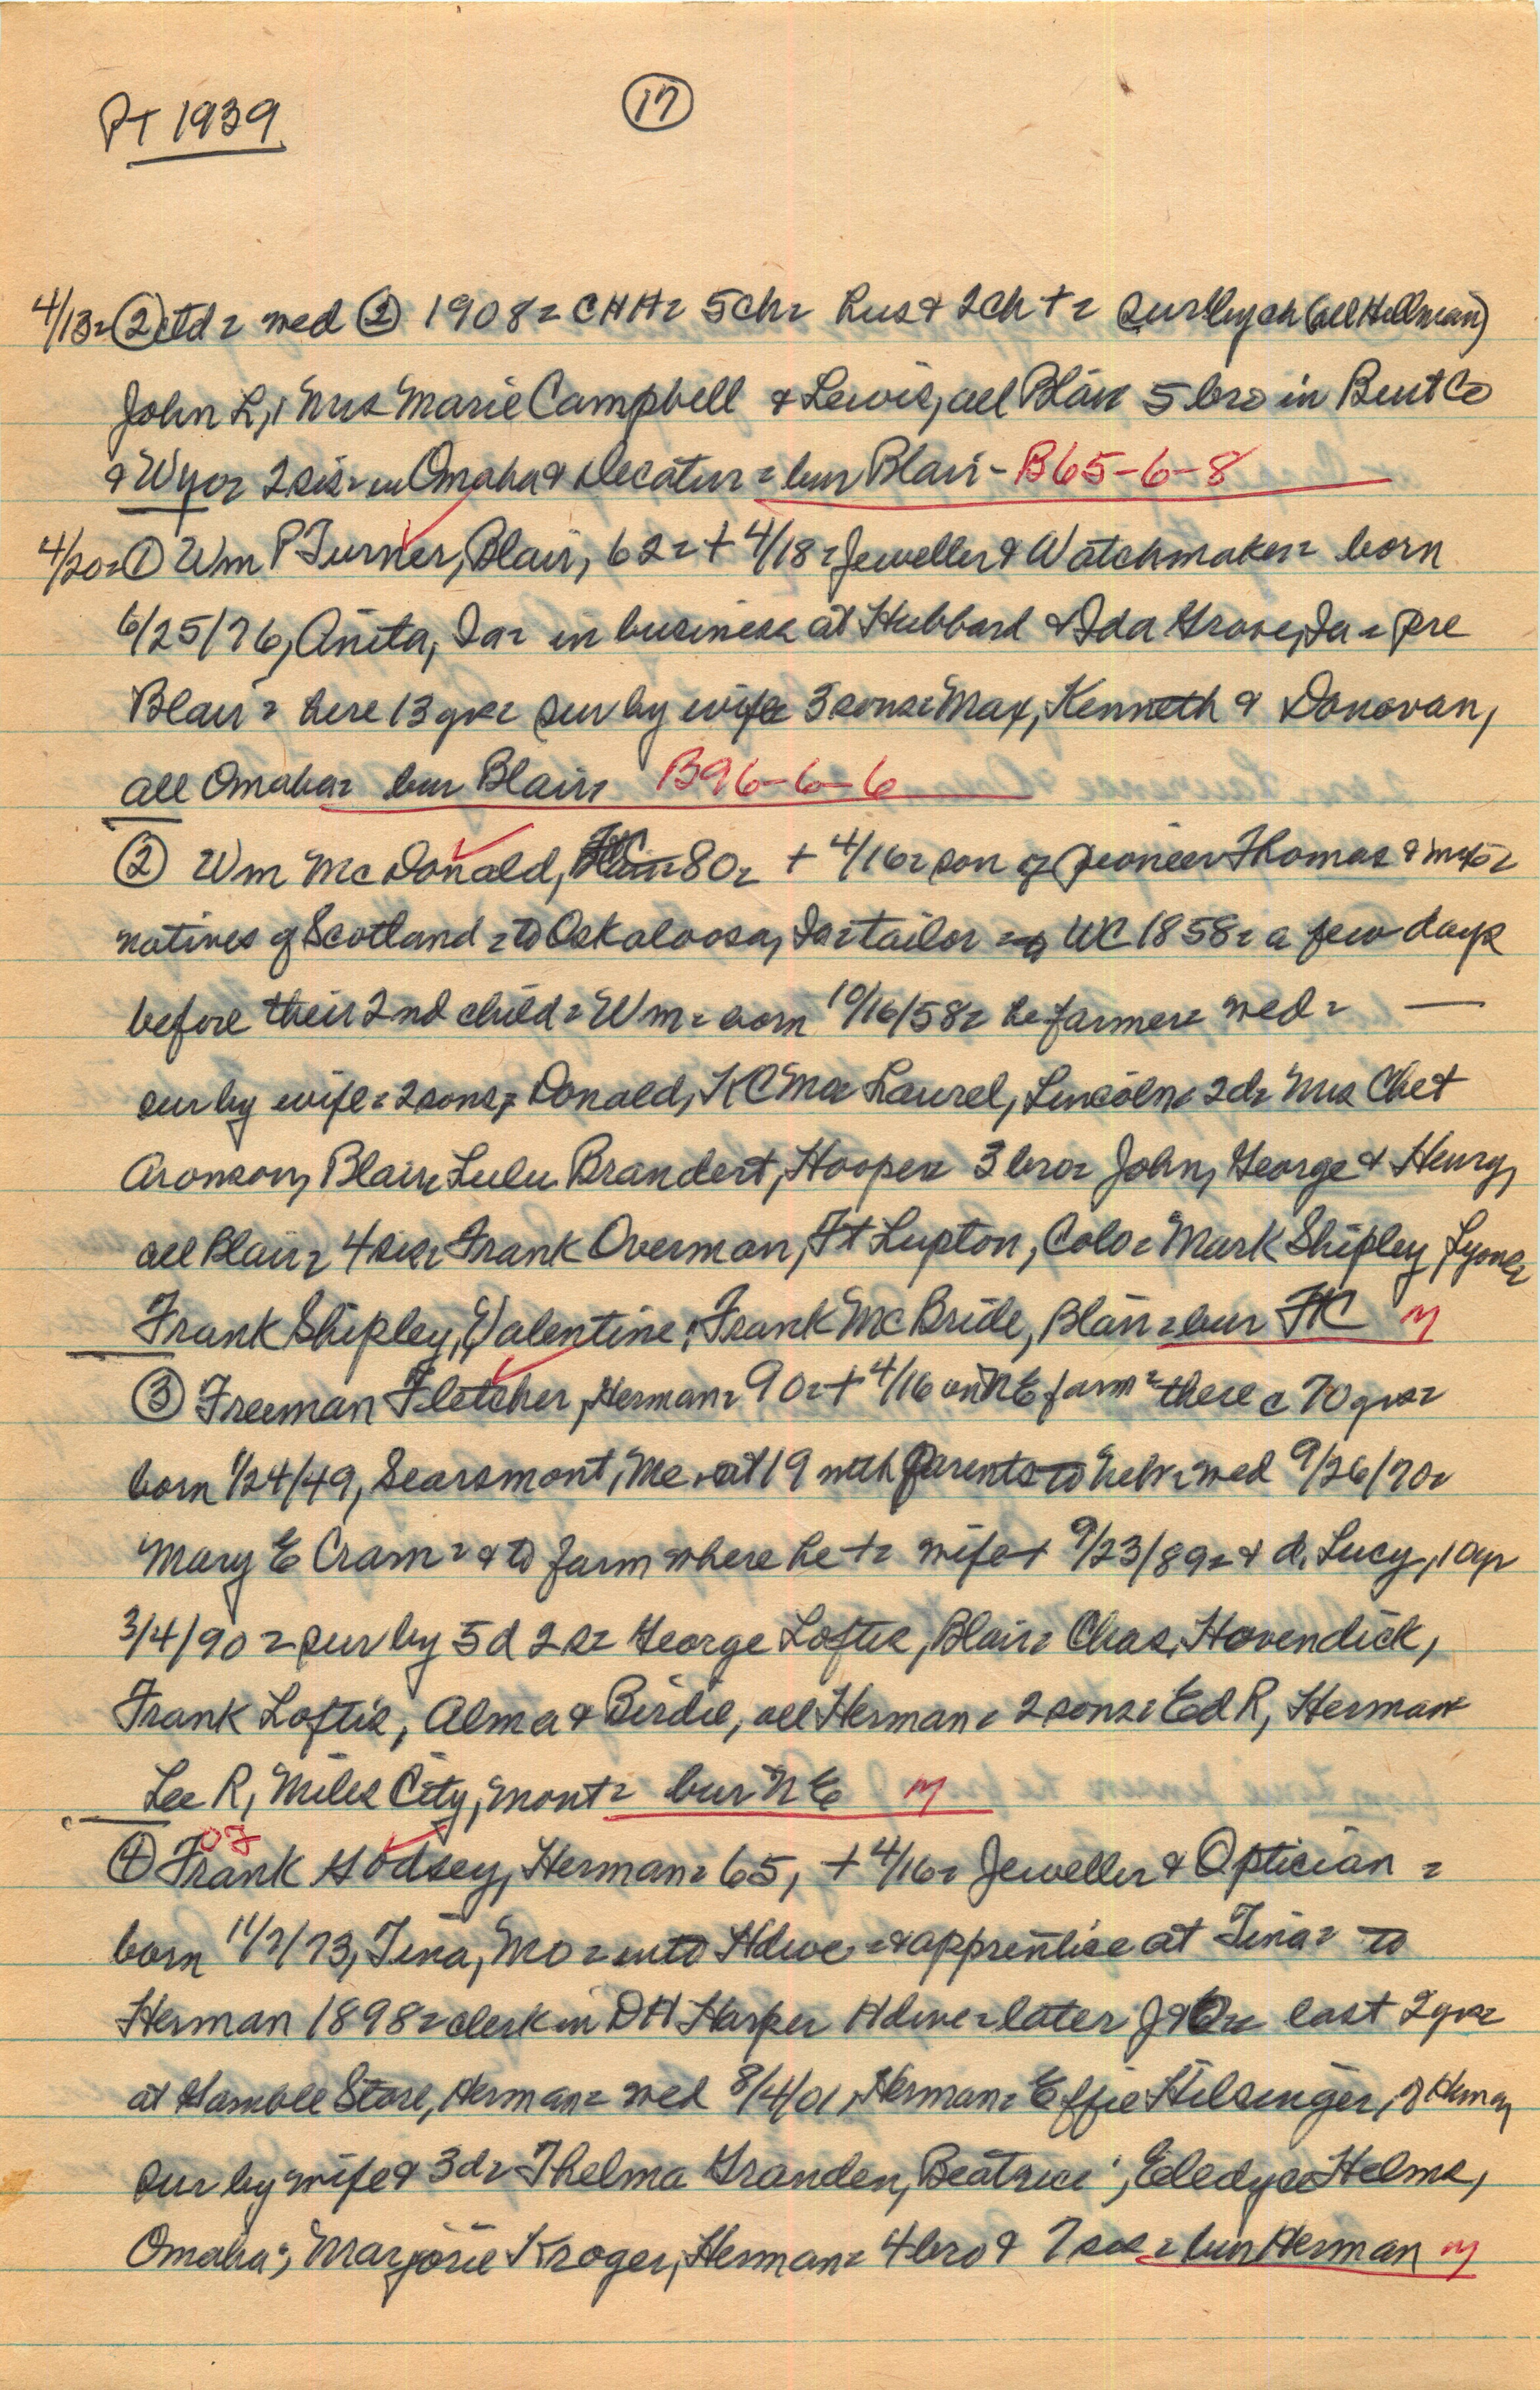 PT 1939
17
4/13 = 2 ctd = wed 2 1908 = CHH = 5 ch = hus & 2 ch + = sur by ch (all Hellman)
John L, Mrs Marie Campbell & Lewis, all Blair 5 bro in Burt Co
& Wyo = 2 sis = in Omaha & Decatur = bur Blair - B65-6-8
4/20 = 1 Wm P Turner, Blair, 62 = + 4/18 = Jeweller & Watchmaker = born
6/25/76, Anita, Ia = in business at Hubbard & Ida Grove, Ia = pre
Blair = here 13 yrs = sur by wife 3 sons = Max, Kenneth & Donovan,
all Omaha = bur Blair = B96-6-6
2 Wm McDonald, 80 = + 4/16 = son of pioneer Thomas &
natives of Scotland = to Oskaloosa, Ia = tailor = WC 1858 = a few days
before their 2nd child = Wm = born 10/16/58 = he farmer = wed = —
sur by wife = 2 sons = Donald, KC Mo = Laurel, Lincoln = 2 d = Mrs Chet
Aronson, Blair = Lulu Brandert, Hooper = 3 bro = John, George & Henry,
all Blair = 4 sis = Frank Overman, Ft Lupton, Colo = Mark Shipley, Lyons =
Frank Shipley, Valentine; Frank McBride, Blair = bur FC M
3 Freeman Fletcher, Herman = 90 = + 4/16 on NE farm = there c 70 yrs =
born 1/24/49, Searsmont, Me = at 19 with parents to Neb = wed 9/26/70 =
Mary E Cram = & to farm where he + = wife + 9/23/89 = & d, Lucy, 10 yr
3/4/90 = sur by 5 d 2 s = George Loftis, Blair = Chas Hovendick,
Frank Loftis, Alma & Birdie, all Herman = 2 sons = Ed R, Herman
Lee R, Miles City, Mont = bur NE M
OF
4 Frank Godsey, Herman = 65, + 4/16 = Jeweller & Optician =
born 11/7/73, Tina, Mo = into Hdwe = & apprentice at Tina = to
Herman 1898 = clerk in DH Harper Hdwe = later J & O = last 2 yrs =
at Gamble Store, Herman = wed 8/4/01, Herman = Effie Hilsinger, of Herman
sur by wife & 3 d = Thelma Granden, Beatrice; Eledyce Helms,
Omaha; Marjorie Kroger, Herman = 4 bro & 7 sis = bur Herman M